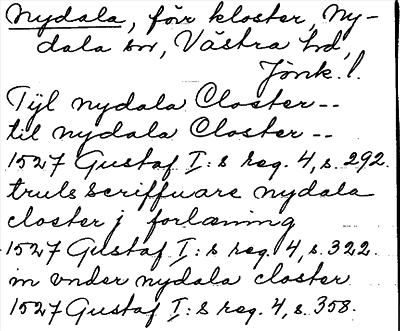 Nydala, förr kloster, Ny-
dala sn, Västra hd,
Jönk. l.
Tijl nydala Closter --
til nydala Closter --
1527 Gustaf I:s reg. 4, s. 292.
truls scriffuare nydala
closter j forlæning
1527 Gustaf I:s reg. 4, s. 322.
in vnder nydala closter
1527 Gustaf I:s reg. 4, s. 358.